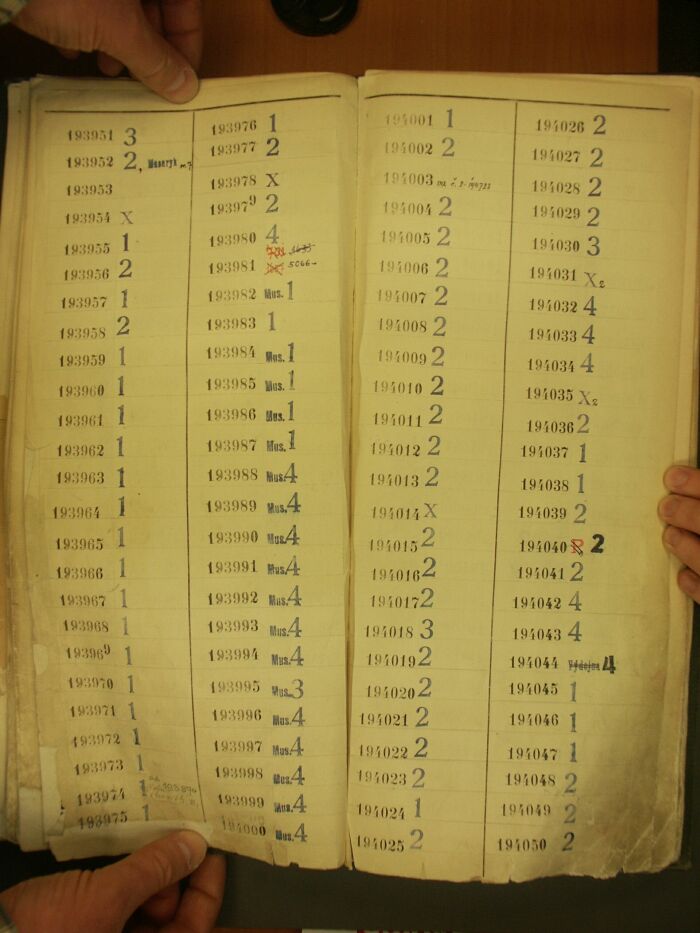 193951 3
193952 2, Masaryk m.7
193953
193954 X
193955 1
193956 2
193957 1
193958 2
193959 1
193960 1
193961 1
193962 1
193963 1
193964 1
193965 1
193966 1
193967 1
193968 1
193969 1
193970 1
193971 1
193972 1
193973 1
193974 1
193975 1
193976 1
193977 2
193978 X
193979 2
193980 4
193981 5066-
193982 Mus. 1
193983 1
193984 Mus. 1
193985 Mus. 1
193986 Mus. 1
193987 Mus. 1
193988 Mus. 4
193989 Mus. 4
193990 Mus. 4
193991 Mus. 4
193992 Mus. 4
193993 Mus. 4
193994 Mus. 4
193995 Mus. 3
193996 Mus. 4
193997 Mus. 4
193998 Mus. 4
193999 Mus. 4
194000 Mus. 4
194001 1
194002 2
194003
194004 2
194005 2
194006 2
194007 2
194008 2
194009 2
194010 2
194011 2
194012 2
194013 2
194014 X
194015 2
194016 2
194017 2
194018 3
194019 2
194020 2
194021 2
194022 2
194023 2
194024 1
194025 2
194026 2
194027 2
194028 2
194029 2
194030 3
194031 X2
194032 4
194033 4
194034 4
194035 X2
194036 2
194037 1
194038 1
194039 2
194040 2
194041 2
194042 4
194043 4
194044 Výdejna 4
194045 1
194046 1
194047 1
194048 2
194049 2
194050 2